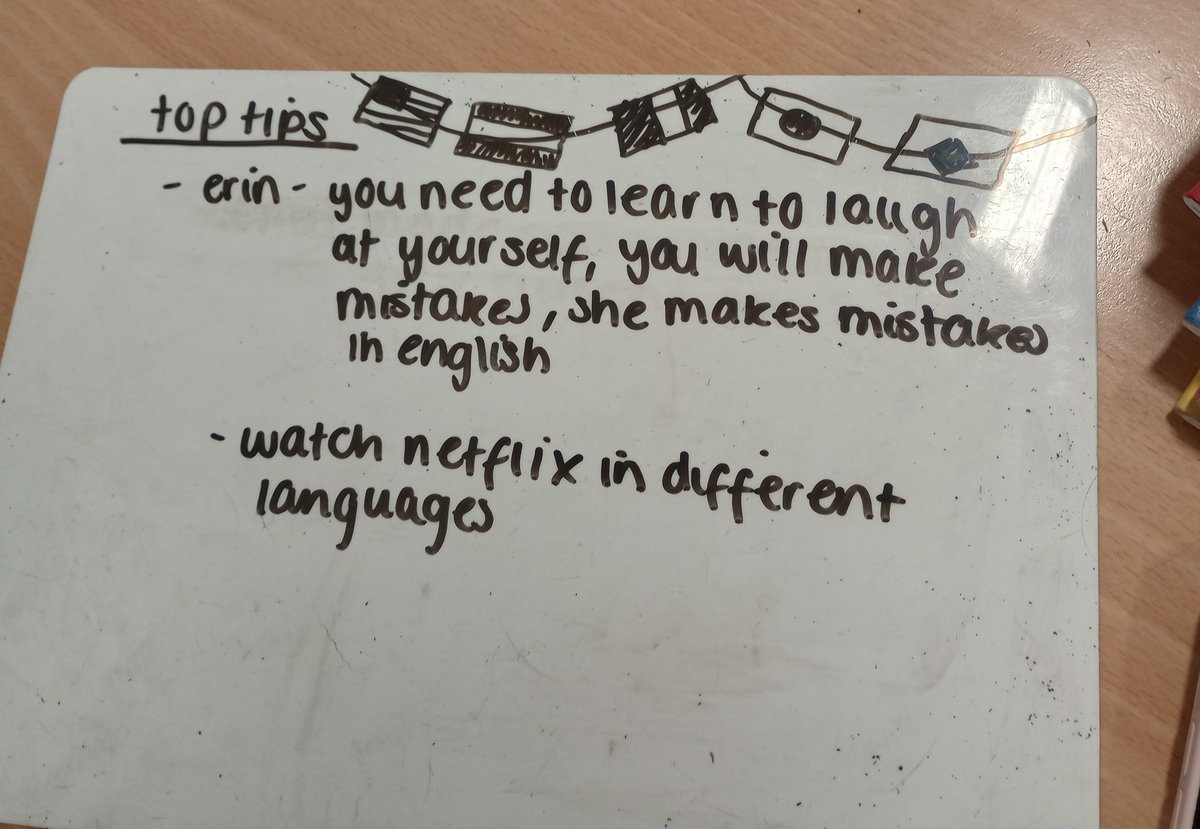 top tips
- erin - you need to learn to laugh
at yourself, you will make
mistakes, she makes mistakes
in english
- watch netflix in different
languages